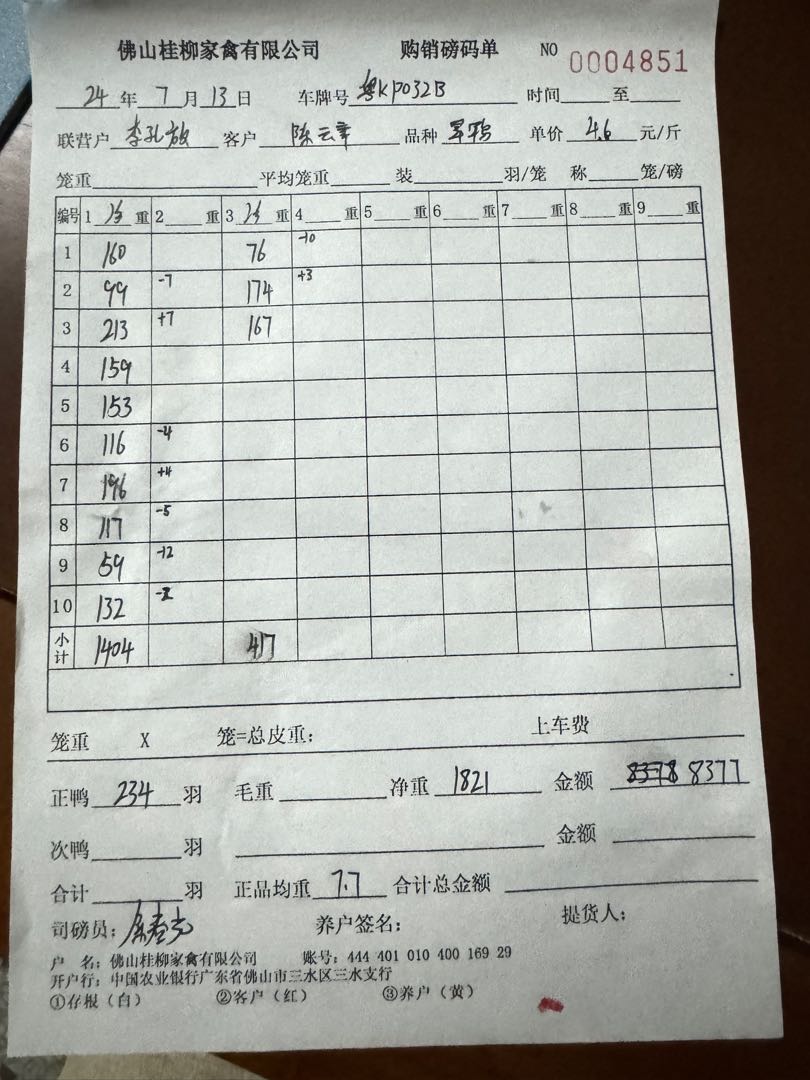 佛山桂柳家禽有限公司 购销磅码单 NO 0004851
24 年 7 月 13 日 车牌号 粤KP032B 时间 至
联营户 李孔放 客户 陈云章 品种 单价 4.6 元/斤
笼重 平均笼重 装 羽/笼 称 笼/磅
编号 1 重 2 重 3 重 4 重 5 重 6 重 7 重 8 重 9 重
1 160 76 -10
2 99 -7 174 +3
3 213 +7 167
4 159
5 153
6 116 -4
7 196 +4
8 117 -5
9 59 -12
10 132
小计 1404 417
笼重 X 笼=总皮重: 上车费
正鸭 234 羽 毛重 净重 1821 金额 8378 8377
次鸭 羽 金额
合计 羽 正品均重 7.7 合计总金额
司磅员: 养户签名: 提货人:
户 名: 佛山桂柳家禽有限公司 账号: 444 401 010 400 169 29
开户行: 中国农业银行广东省佛山市三水区三水支行
①存根(白) ②客户(红) ③养户(黄)